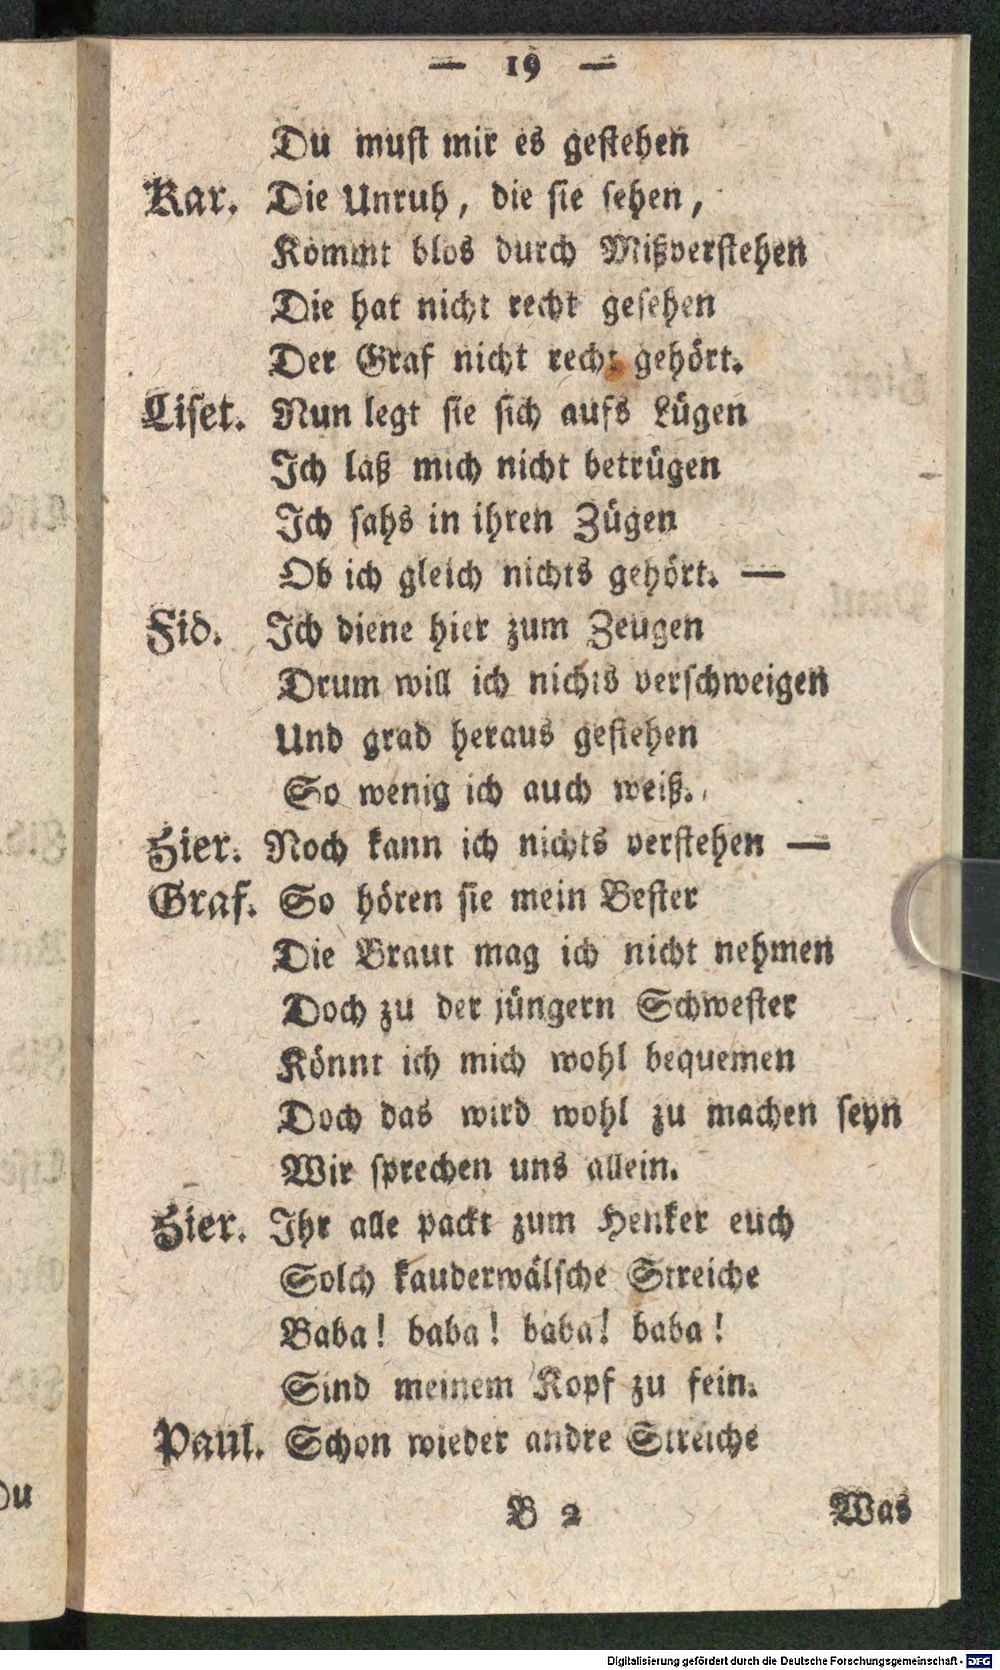 — 19 —
Du must mir es gestehen
Kar. Die Unruh, die sie sehen,
Kommt blos durch Mißverstehen
Die hat nicht recht gesehen
Der Graf nicht recht gehört.
Liset. Nun legt sie sich aufs Lügen
Ich laß mich nicht betrügen
Ich sahs in ihren Zügen
Ob ich gleich nichts gehört. —
Fid. Ich diene hier zum Zeugen
Drum will ich nichts verschweigen
Und grad heraus gestehen
So wenig ich auch weiß.
Hier. Noch kann ich nichts verstehen —
Graf. So hören sie mein Bester
Die Braut mag ich nicht nehmen
Doch zu der jüngern Schwester
Könnt ich mich wohl bequemen
Doch das wird wohl zu machen seyn
Wir sprechen uns allein.
Hier. Ihr alle packt zum Henker euch
Solch kauderwälsche Streiche
Baba! baba! baba! baba!
Sind meinem Kopf zu fein.
Paul. Schon wieder andre Streiche
Du
B 2 Was
Digitalisierung gefördert durch die Deutsche Forschungsgemeinschaft - DFG